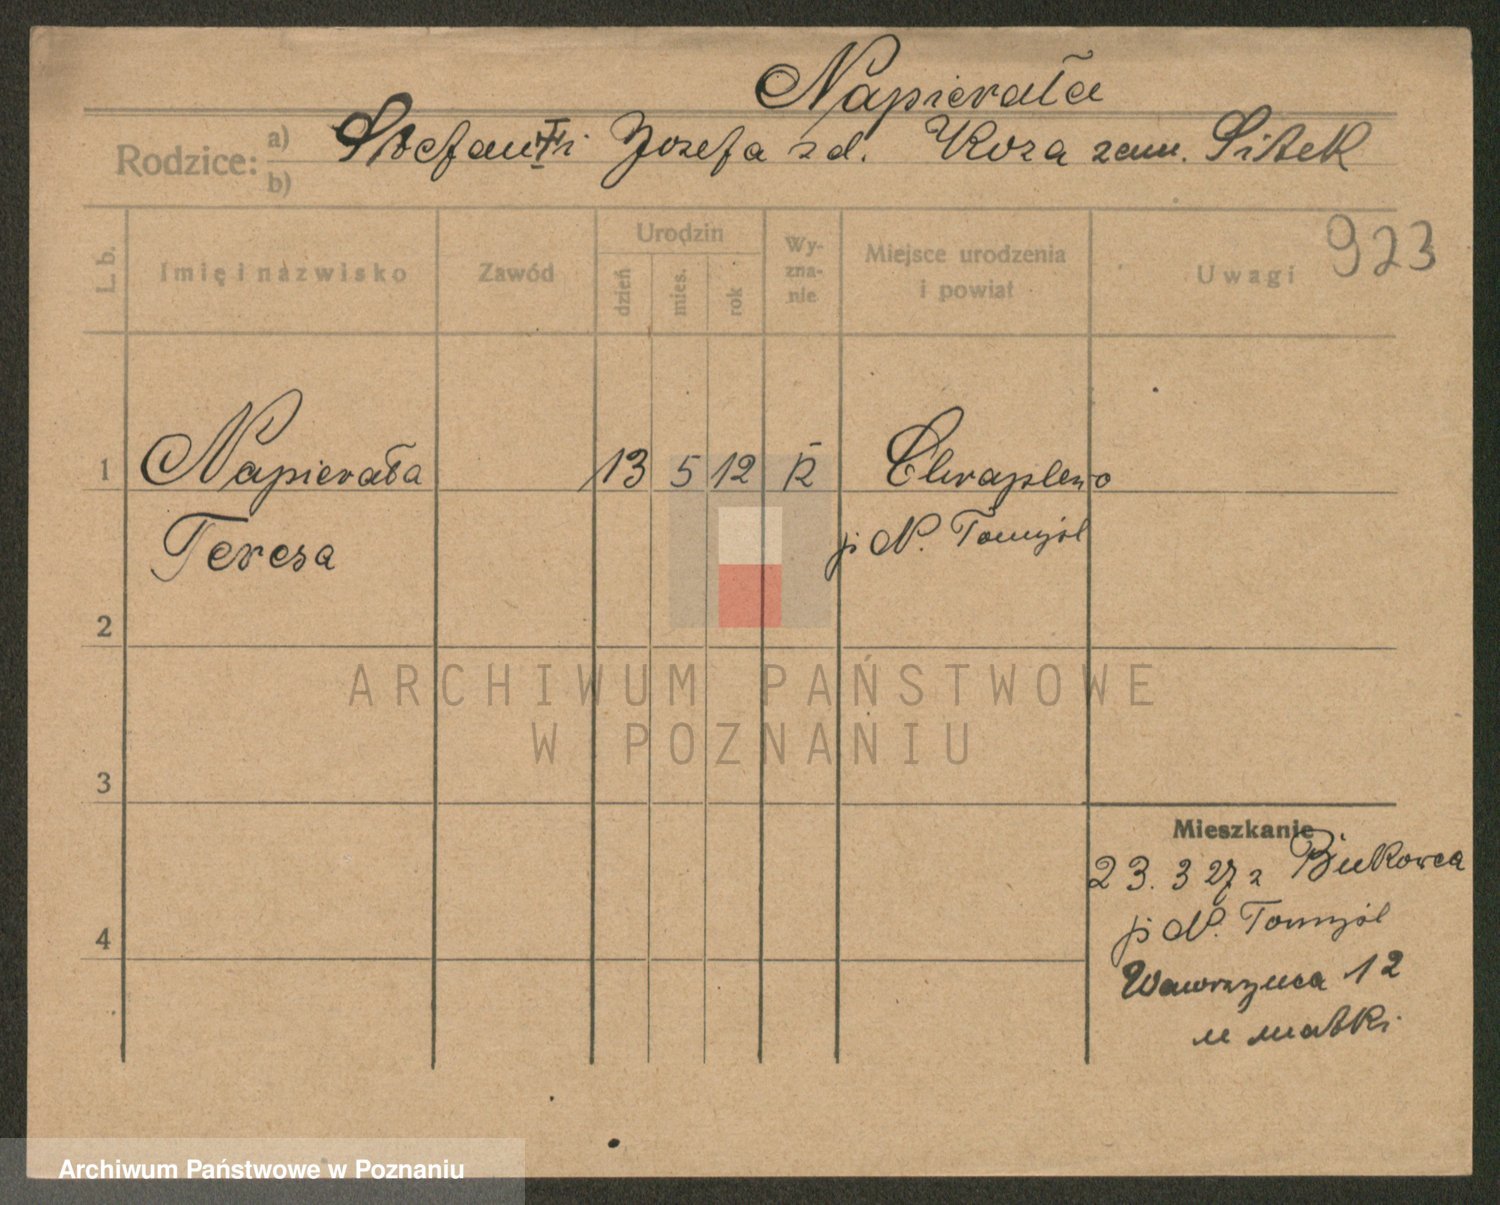 Napierała
Rodzice: a) Stefan †i Jozefa zd. Koza zam. Sitek
b)
L. b. Imię i nazwisko Zawód Urodzin Wy-zna-nie Miejsce urodzenia i powiat Uwagi 923
dzień mies. rok
1 Napierała 13 5 12 R Chraplewo
Teresa p N. Tomyśl
2
ARCHIWUM PAŃSTWOWE
W POZNANIU
3
Mieszkanie
23. 3 27 z Bukowca
p N. Tomyśl
4
Wawrzyńca 12
u matki
Archiwum Państwowe w Poznaniu